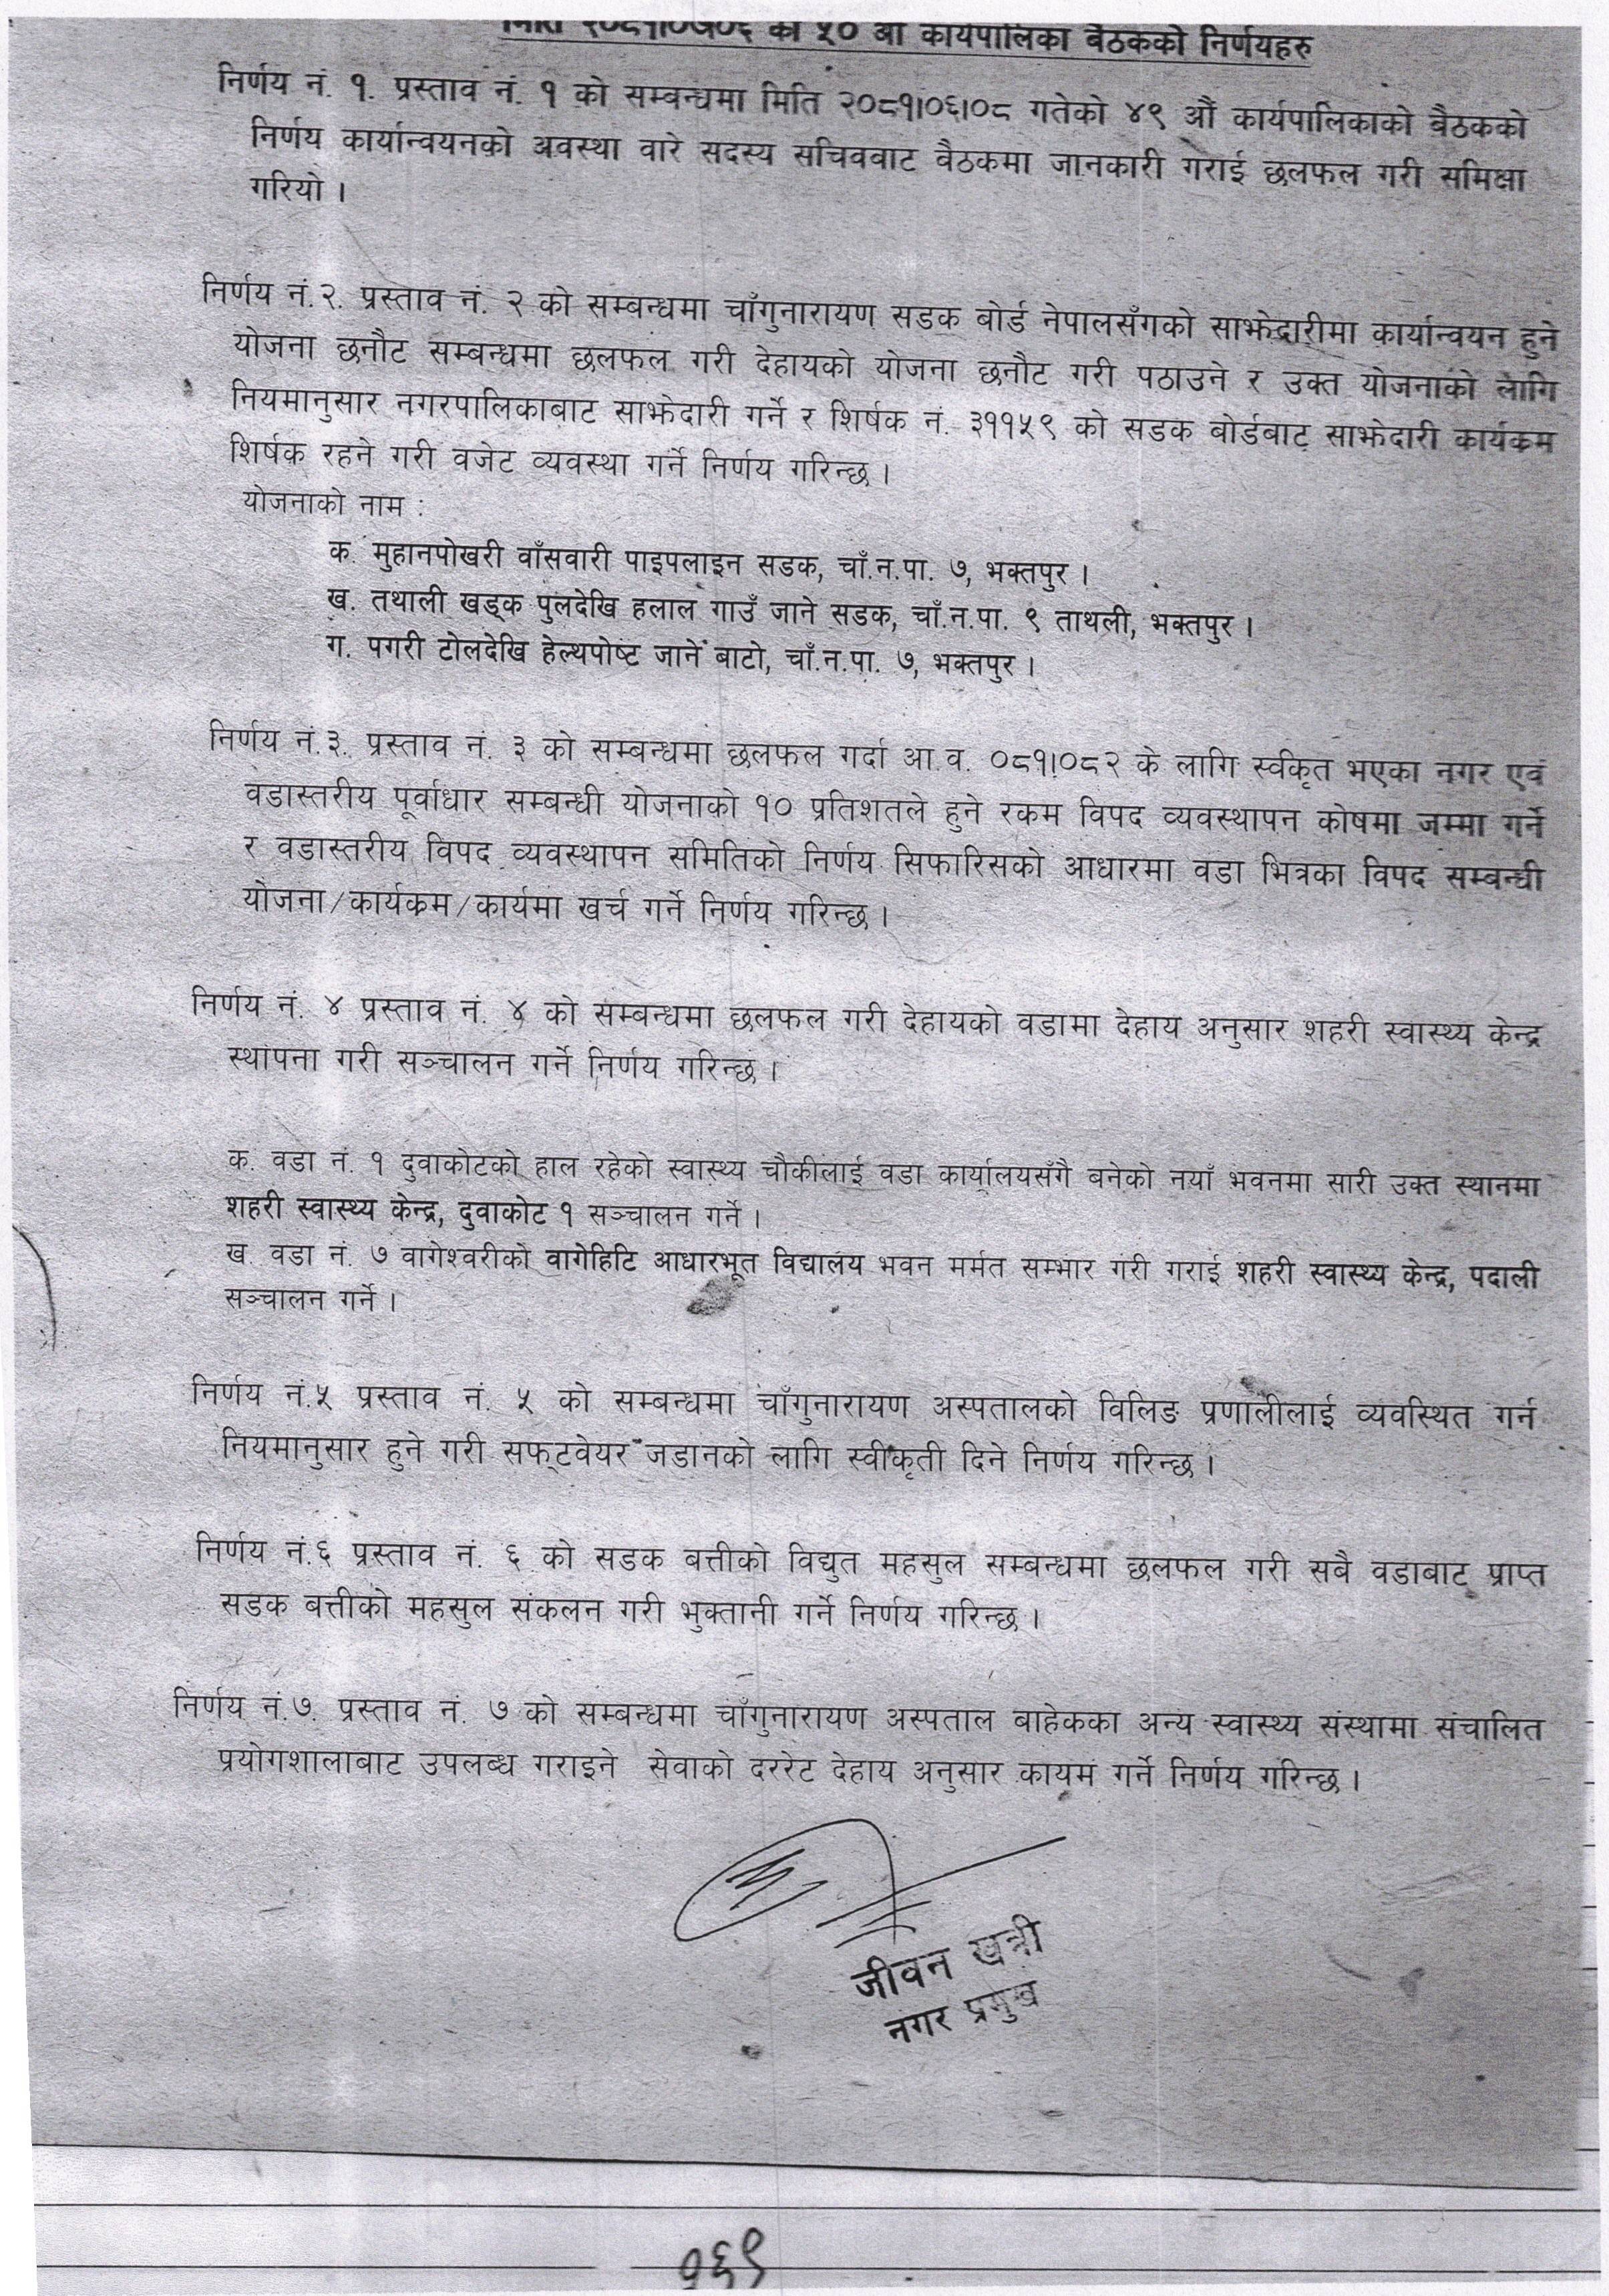 मिति २०८१।०७।०६ को ५० औं कार्यपालिका बैठकको निर्णयहरु
निर्णय नं. १. प्रस्ताव नं. १ को सम्बन्धमा मिति २०८१।०६।०८ गतेको ४९ औं कार्यपालिकाको बैठकको
निर्णय कार्यान्वयनको अवस्था वारे सदस्य सचिववाट वैठकमा जानकारी गराई छलफल गरी समिक्षा
गरियो ।
निर्णय नं.२. प्रस्ताव नं. २ को सम्बन्धमा चाँगुनारायण सडक बोर्ड नेपालसँगको साझेदारीमा कार्यान्वयन हुने
योजना छनौट सम्बन्धमा छलफल गरी देहायको योजना छनौट गरी पठाउने र उक्त योजनाको लागि
नियमानुसार नगरपालिकाबाट साझेदारी गर्ने र शिर्षक नं. ३११५९ को सडक बोर्डबाट साझेदारी कार्यक्रम
शिर्षक रहने गरी वजेट व्यवस्था गर्ने निर्णय गरिन्छ ।
योजनाको नाम :
क. मुहानपोखरी वाँसवारी पाइपलाइन सडक, चाँ.न.पा. ७, भक्तपुर ।
ख. तथाली खड्क पुलदेखि हलाल गाउँ जाने सडक, चाँ.न.पा. ९ ताथली, भक्तपुर ।
ग. पगरी टोलदेखि हेल्थपोष्ट जाने बाटो, चाँ.न.पा. ७, भक्तपुर ।
निर्णय नं.३. प्रस्ताव नं. ३ को सम्बन्धमा छलफल गर्दा आ.व. ०८१।०८२ के लागि स्वीकृत भएका नगर एवं
वडास्तरीय पूर्वाधार सम्बन्धी योजनाको १० प्रतिशतले हुने रकम विपद व्यवस्थापन कोषमा जम्मा गर्ने
र वडास्तरीय विपद व्यवस्थापन समितिको निर्णय सिफारिसको आधारमा वडा भित्रका विपद सम्बन्धी
योजना/कार्यक्रम/कार्यमा खर्च गर्ने निर्णय गरिन्छ ।
निर्णय नं. ४ प्रस्ताव नं. ४ को सम्बन्धमा छलफल गरी देहायको वडामा देहाय अनुसार शहरी स्वास्थ्य केन्द्र
स्थापना गरी सञ्चालन गर्ने निर्णय गरिन्छ ।
क. वडा नं. १ दुवाकोटको हाल रहेको स्वास्थ्य चौकीलाई वडा कार्यालयसँगै बनेको नयाँ भवनमा सारी उक्त स्थानमा
शहरी स्वास्थ्य केन्द्र, दुवाकोट १ सञ्चालन गर्ने ।
ख. वडा नं. ७ वागेश्वरीको वागेहिटि आधारभूत विद्यालय भवन मर्मत सम्भार गरी गराई शहरी स्वास्थ्य केन्द्र, पदाली
सञ्चालन गर्ने ।
निर्णय नं.५ प्रस्ताव नं. ५ को सम्बन्धमा चाँगुनारायण अस्पतालको विलिङ प्रणालीलाई व्यवस्थित गर्न
नियमानुसार हुने गरी सफ्टवेयर जडानको लागि स्वीकृती दिने निर्णय गरिन्छ ।
निर्णय नं.६ प्रस्ताव नं. ६ को सडक बत्तीको विद्युत महसुल सम्बन्धमा छलफल गरी सबै वडाबाट प्राप्त
सडक बत्तीको महसुल संकलन गरी भुक्तानी गर्ने निर्णय गरिन्छ ।
निर्णय नं.७. प्रस्ताव नं. ७ को सम्बन्धमा चाँगुनारायण अस्पताल बाहेकका अन्य स्वास्थ्य संस्थामा संचालित
प्रयोगशालाबाट उपलब्ध गराइने सेवाको दररेट देहाय अनुसार कायम गर्ने निर्णय गरिन्छ ।
जीवन खत्री
नगर प्रमुख
१६९